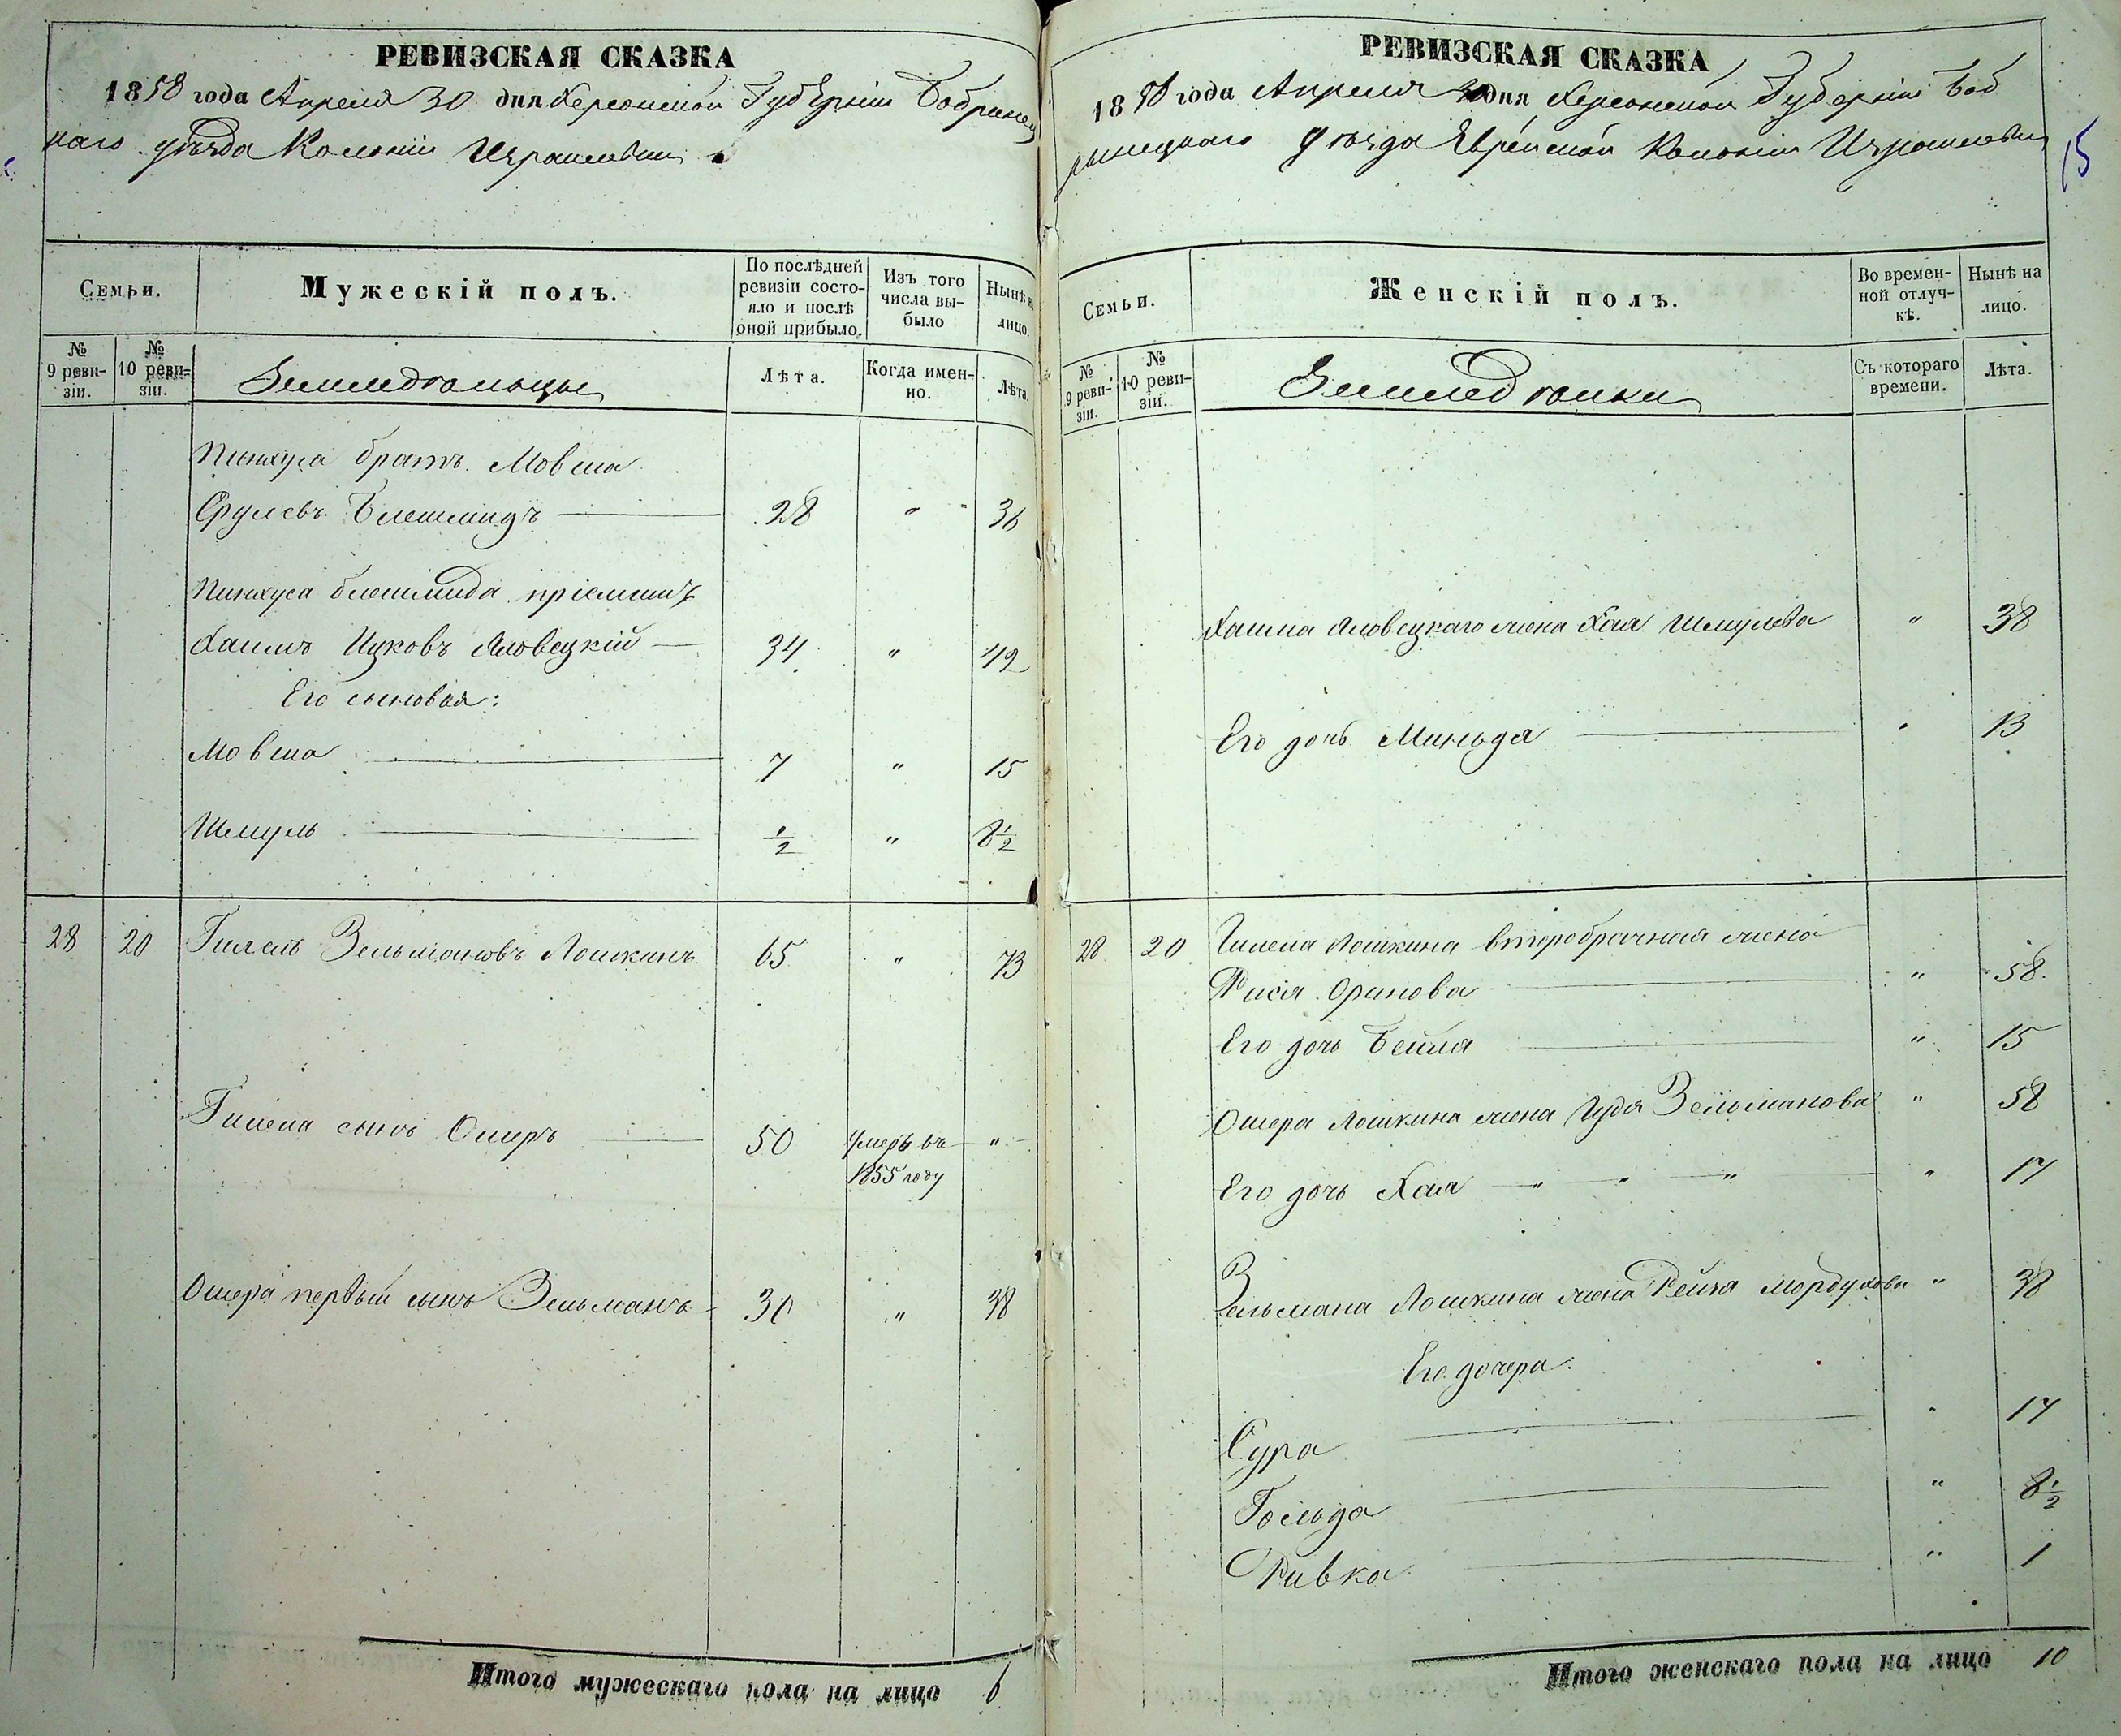 РЕВИЗСКАЯ СКАЗКА
1858 года Апреля 30 дня Херсонской Губерніи Бобринец
каго уѣзда Колоніи Израилевки
Семьи.
Мужескій полъ.
По послѣдней ревизіи состояло и послѣ оной прибыло.
Изъ того числа выбыло
Нынѣ на лицо.
№ 9 ревизіи.
№ 10 ревизіи.
Земледѣльцы
Лѣта.
Когда именно.
Лѣта.
Пинхуса братъ Мовша
Срулевъ Блешмидъ 28 " 36
Пинхуса Блешмида пріемышъ
Хаимъ Ицковъ Яловецкій 34 " 42
Его сыновья:
Мовша 7 " 15
Шмуль 1/2 " 8 1/2
28 20 Гилель Зельмановъ Лошкинъ 65 " 73
Гилеля сынъ Ошеръ 50 умеръ въ "
1855 году
Ошера первый сынъ Зельманъ 30 " 38
Итого мужескаго пола на лицо 6
РЕВИЗСКАЯ СКАЗКА
1858 года Апреля 30 дня Херсонской Губерніи Боб
ринецкаго уѣзда Еврейской Колоніи Израилевки
15
Семьи.
Женскій полъ.
Во временной отлучкѣ.
Нынѣ на лицо.
№ 9 ревизіи.
№ 10 ревизіи.
Земледѣлки
Съ котораго времени.
Лѣта.
Хаима Яловецкаго жена Хая Шмулева " 38
Его дочь Миньдя " 13
28 20 Гилеля Лошкина второбрачная жена
Рися Оринова " 58
Его дочь Бейля " 15
Ошера Лошкина жена Гудя Зельманова " 58
Его дочь Хая " " " " 17
Зельмана Лошкина жена Рейзя Мордухова " 38
Его дочери:
Сура " 17
Гольда " 8 1/2
Ривка " 1
Итого женскаго пола на лицо 10